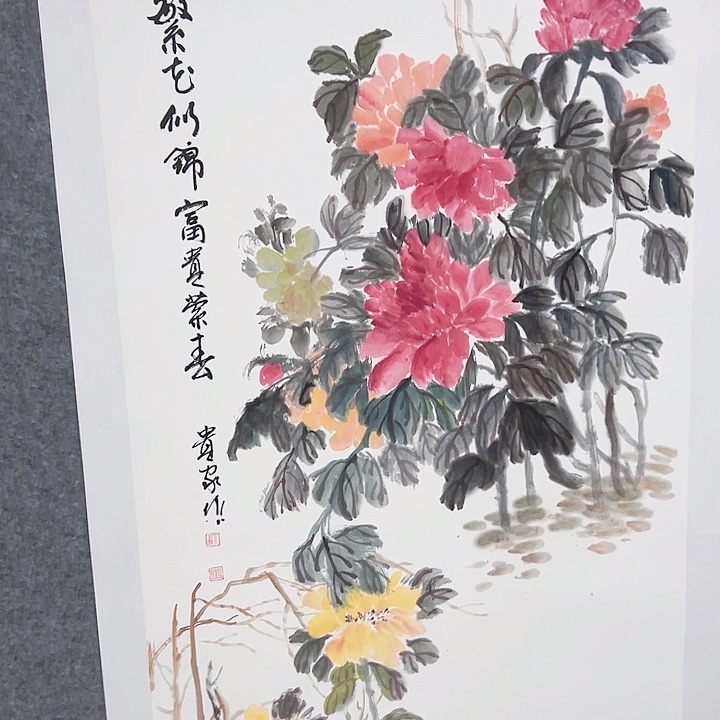 繁花似錦富貴榮春
貴家作